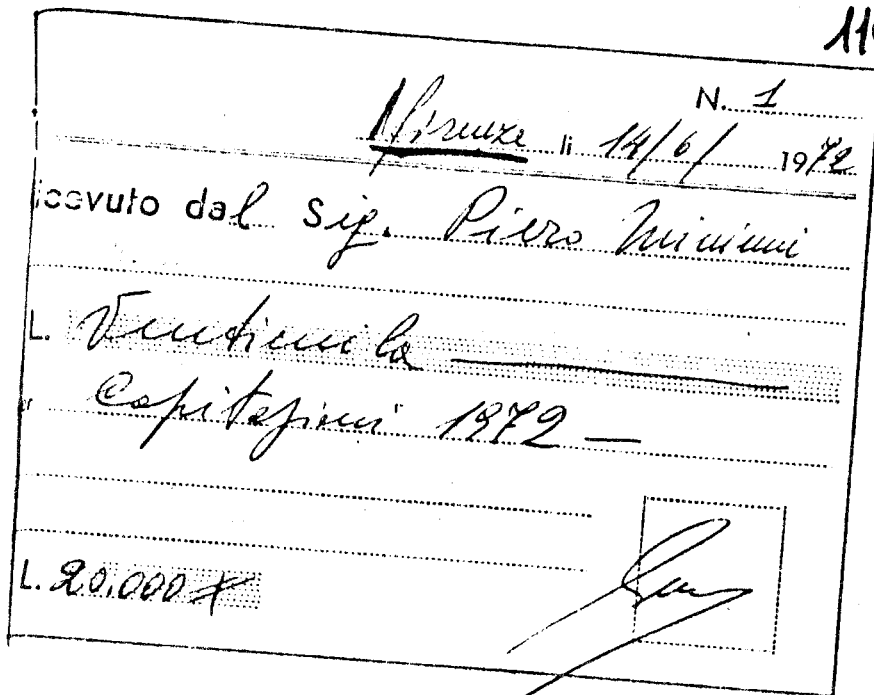 11
N. 1
Firenze li 14/6/ 1972
icevuto dal Sig. Piero
L. Ventimila
Capitazioni 1972 —
L. 20.000